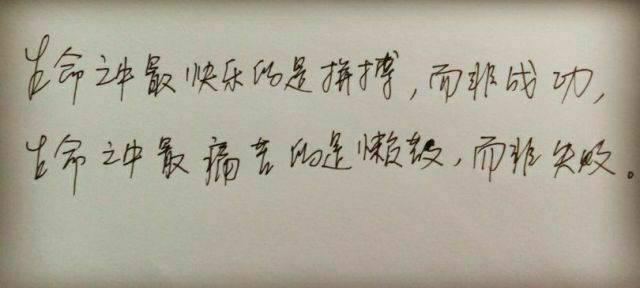 生命之中最快乐的是拼搏,而非成功,
生命之中最痛苦的是懒散,而非失败。